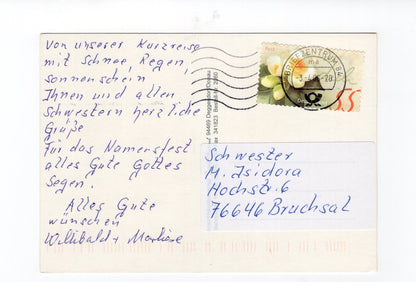 Von unserer Kurzreise
mit Schnee, Regen,
sonnenschein
Ihnen und allen
Schwestern herzliche
Grüße
Für das Namensfest
alles Gute Gottes
Segen.
Alles Gute
wünschen
Willibald +
94469 Deggendorf
BRIEFZENTRUM 84
55
Schwester
M. Isidora
Hochstr. 6
76646 Bruchsal